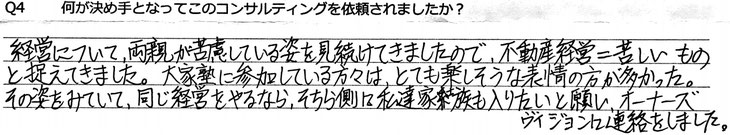 Q4　何が決め手となってこのコンサルティングを依頼されましたか？
経営について、両親が苦慮している姿を見続けてきましたので、不動産経営＝苦しいもの
と捉えてきました。大家塾に参加している方々は、とても楽しそうな表情の方が多かった。
その姿をみていて、同じ経営をやるなら、そちら側に私達家族も入りたいと願い、オーナーズ
ヴィジョンに連絡をしました。